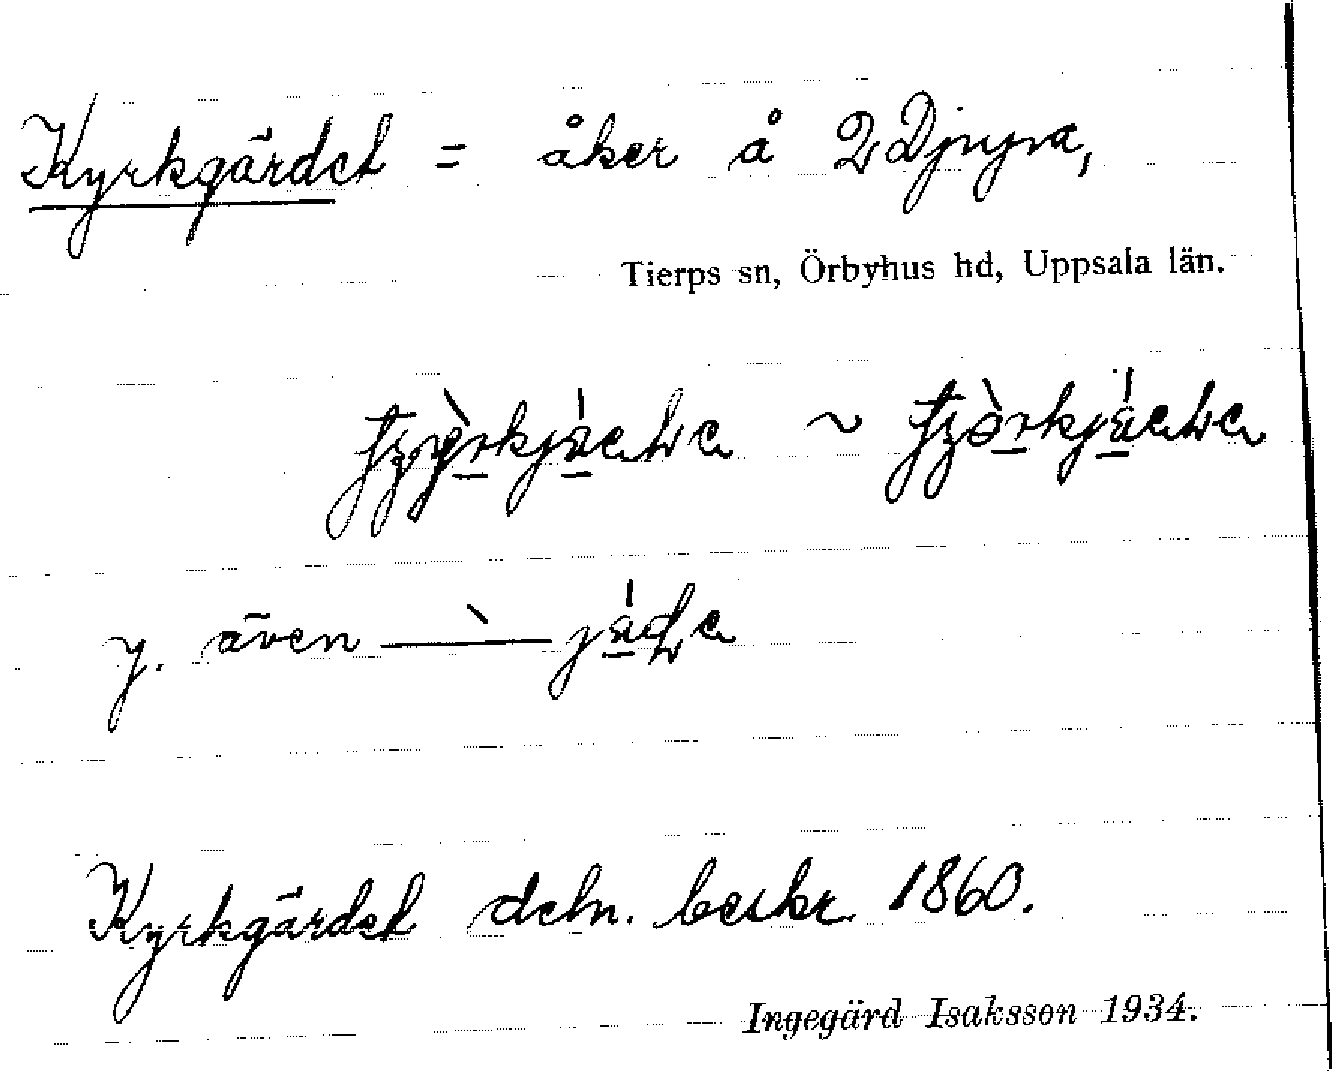 Kyrkgärdet = åker å 2 Djupa,
Tierps sn, Örbyhus hd, Uppsala län.
~
y. även
Kyrkgärdet deln. beskr. 1860.
Ingegärd Isaksson 1934.